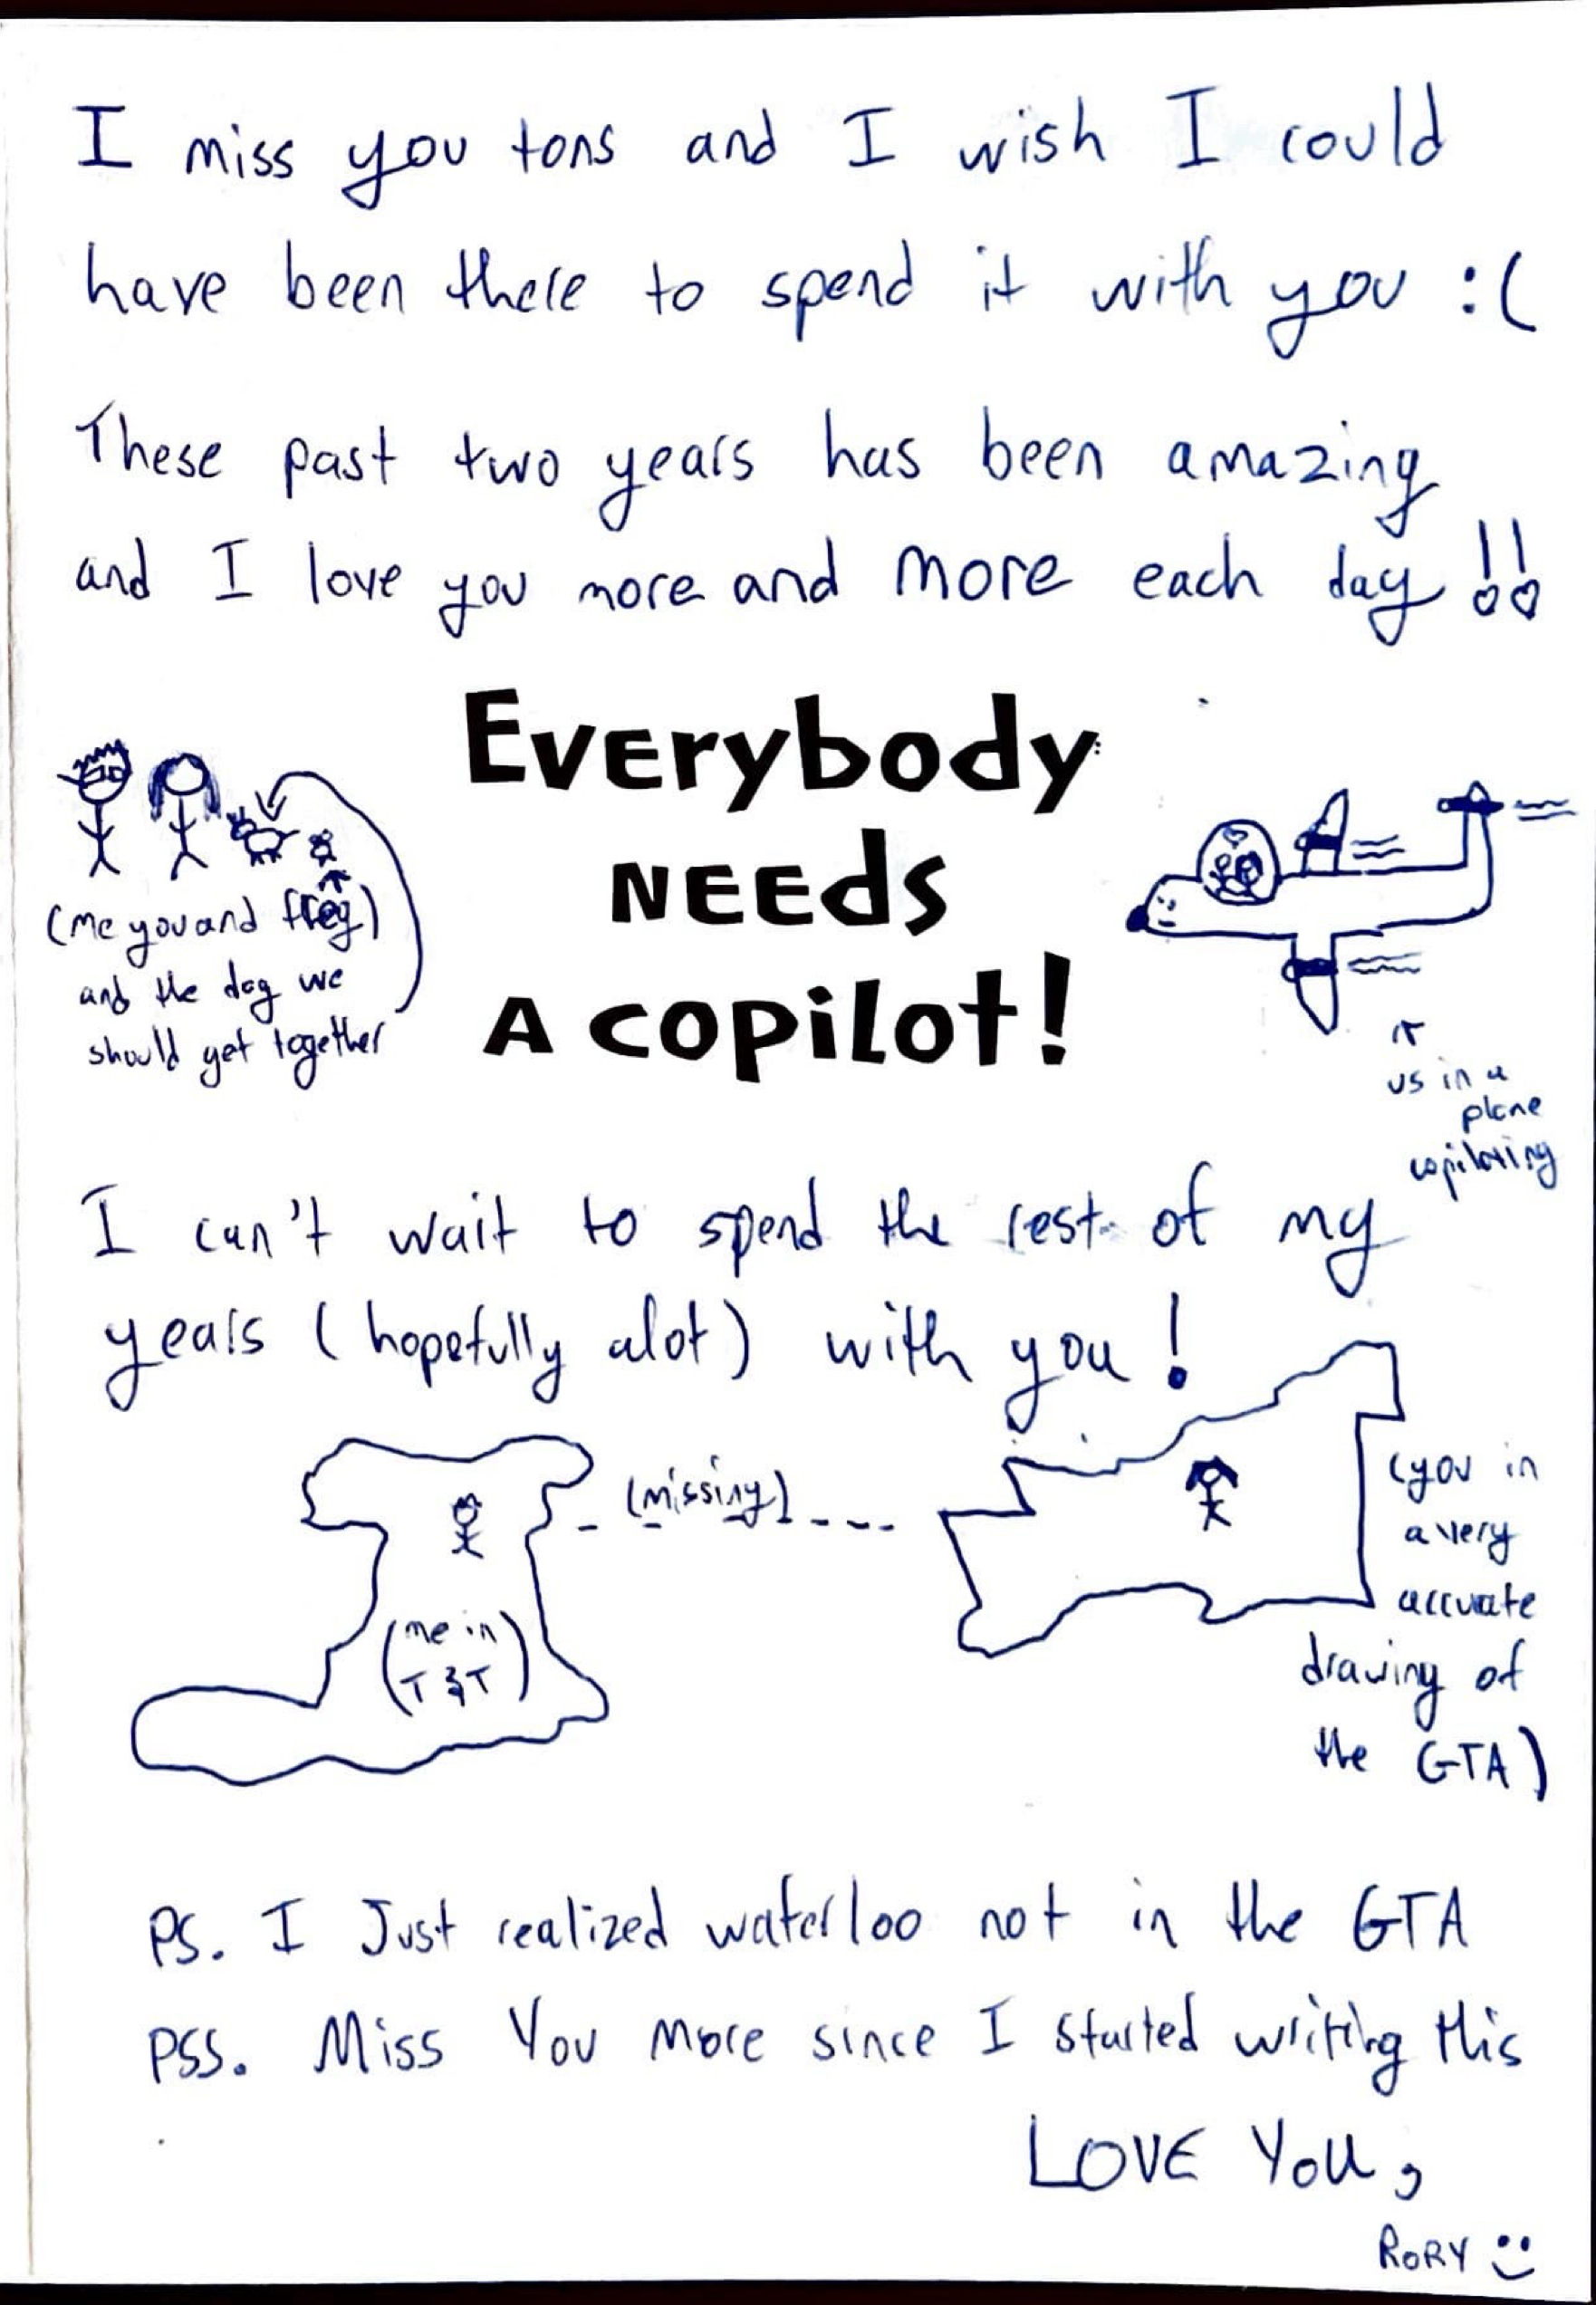 I miss you tons and I wish I could
have been there to spend it with you :(
These past two years has been amazing
and I love you more and more each day !!
Everybody
needs
a copilot!
(me you and frog)
and the dog we
should get together
us in a
plane
copiloting
I can't wait to spend the rest of my
years (hopefully alot) with you!
(missing)
(me in
T & T)
(you in
a very
accurate
drawing of
the GTA)
PS. I Just realized waterloo not in the GTA
PSS. Miss You More since I started writing this
LOVE You,
RORY :)